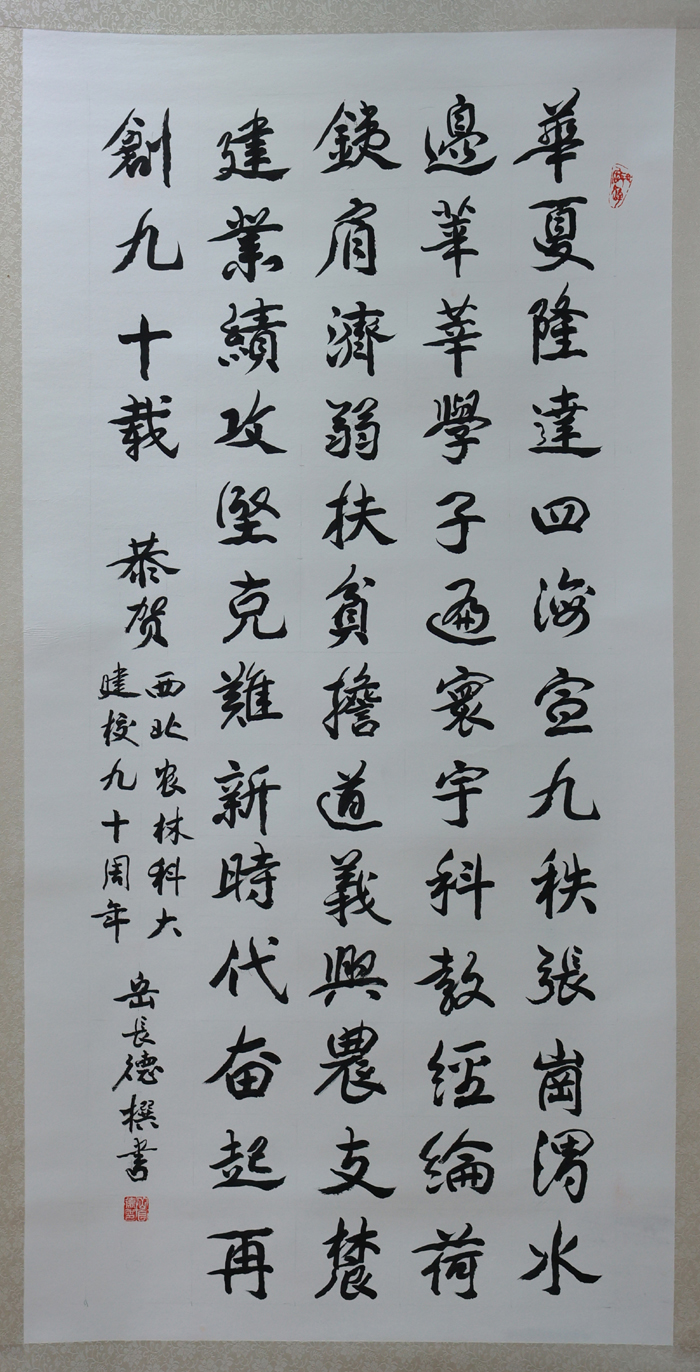 華夏隆達四海宣九秩張崗渭水
邊莘莘學子遍寰宇科教經綸荷
銕肩濟弱扶貧擔道義興農支辳
建業績攻堅克難新時代奋起再
創九十載
恭贺
西北农林科大
建校九十周年
岳長德撰書